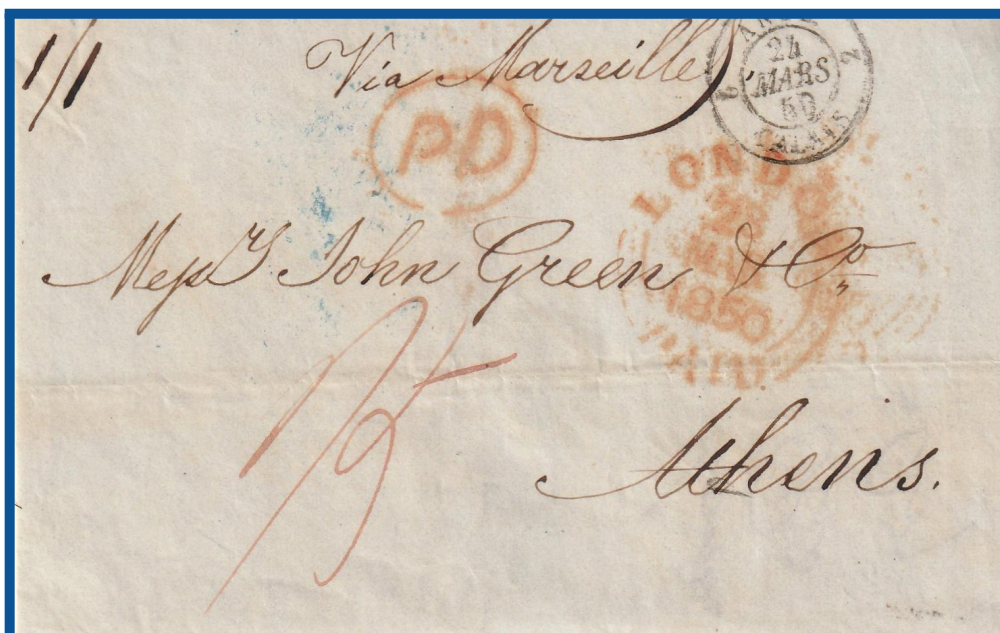 1/1
Via Marseille
PD
ANGL.
2
24
MARS
50
CALAIS
LONDON
22
MAR
1850
PAID
Mess.rs John Green & Co.
Athens.